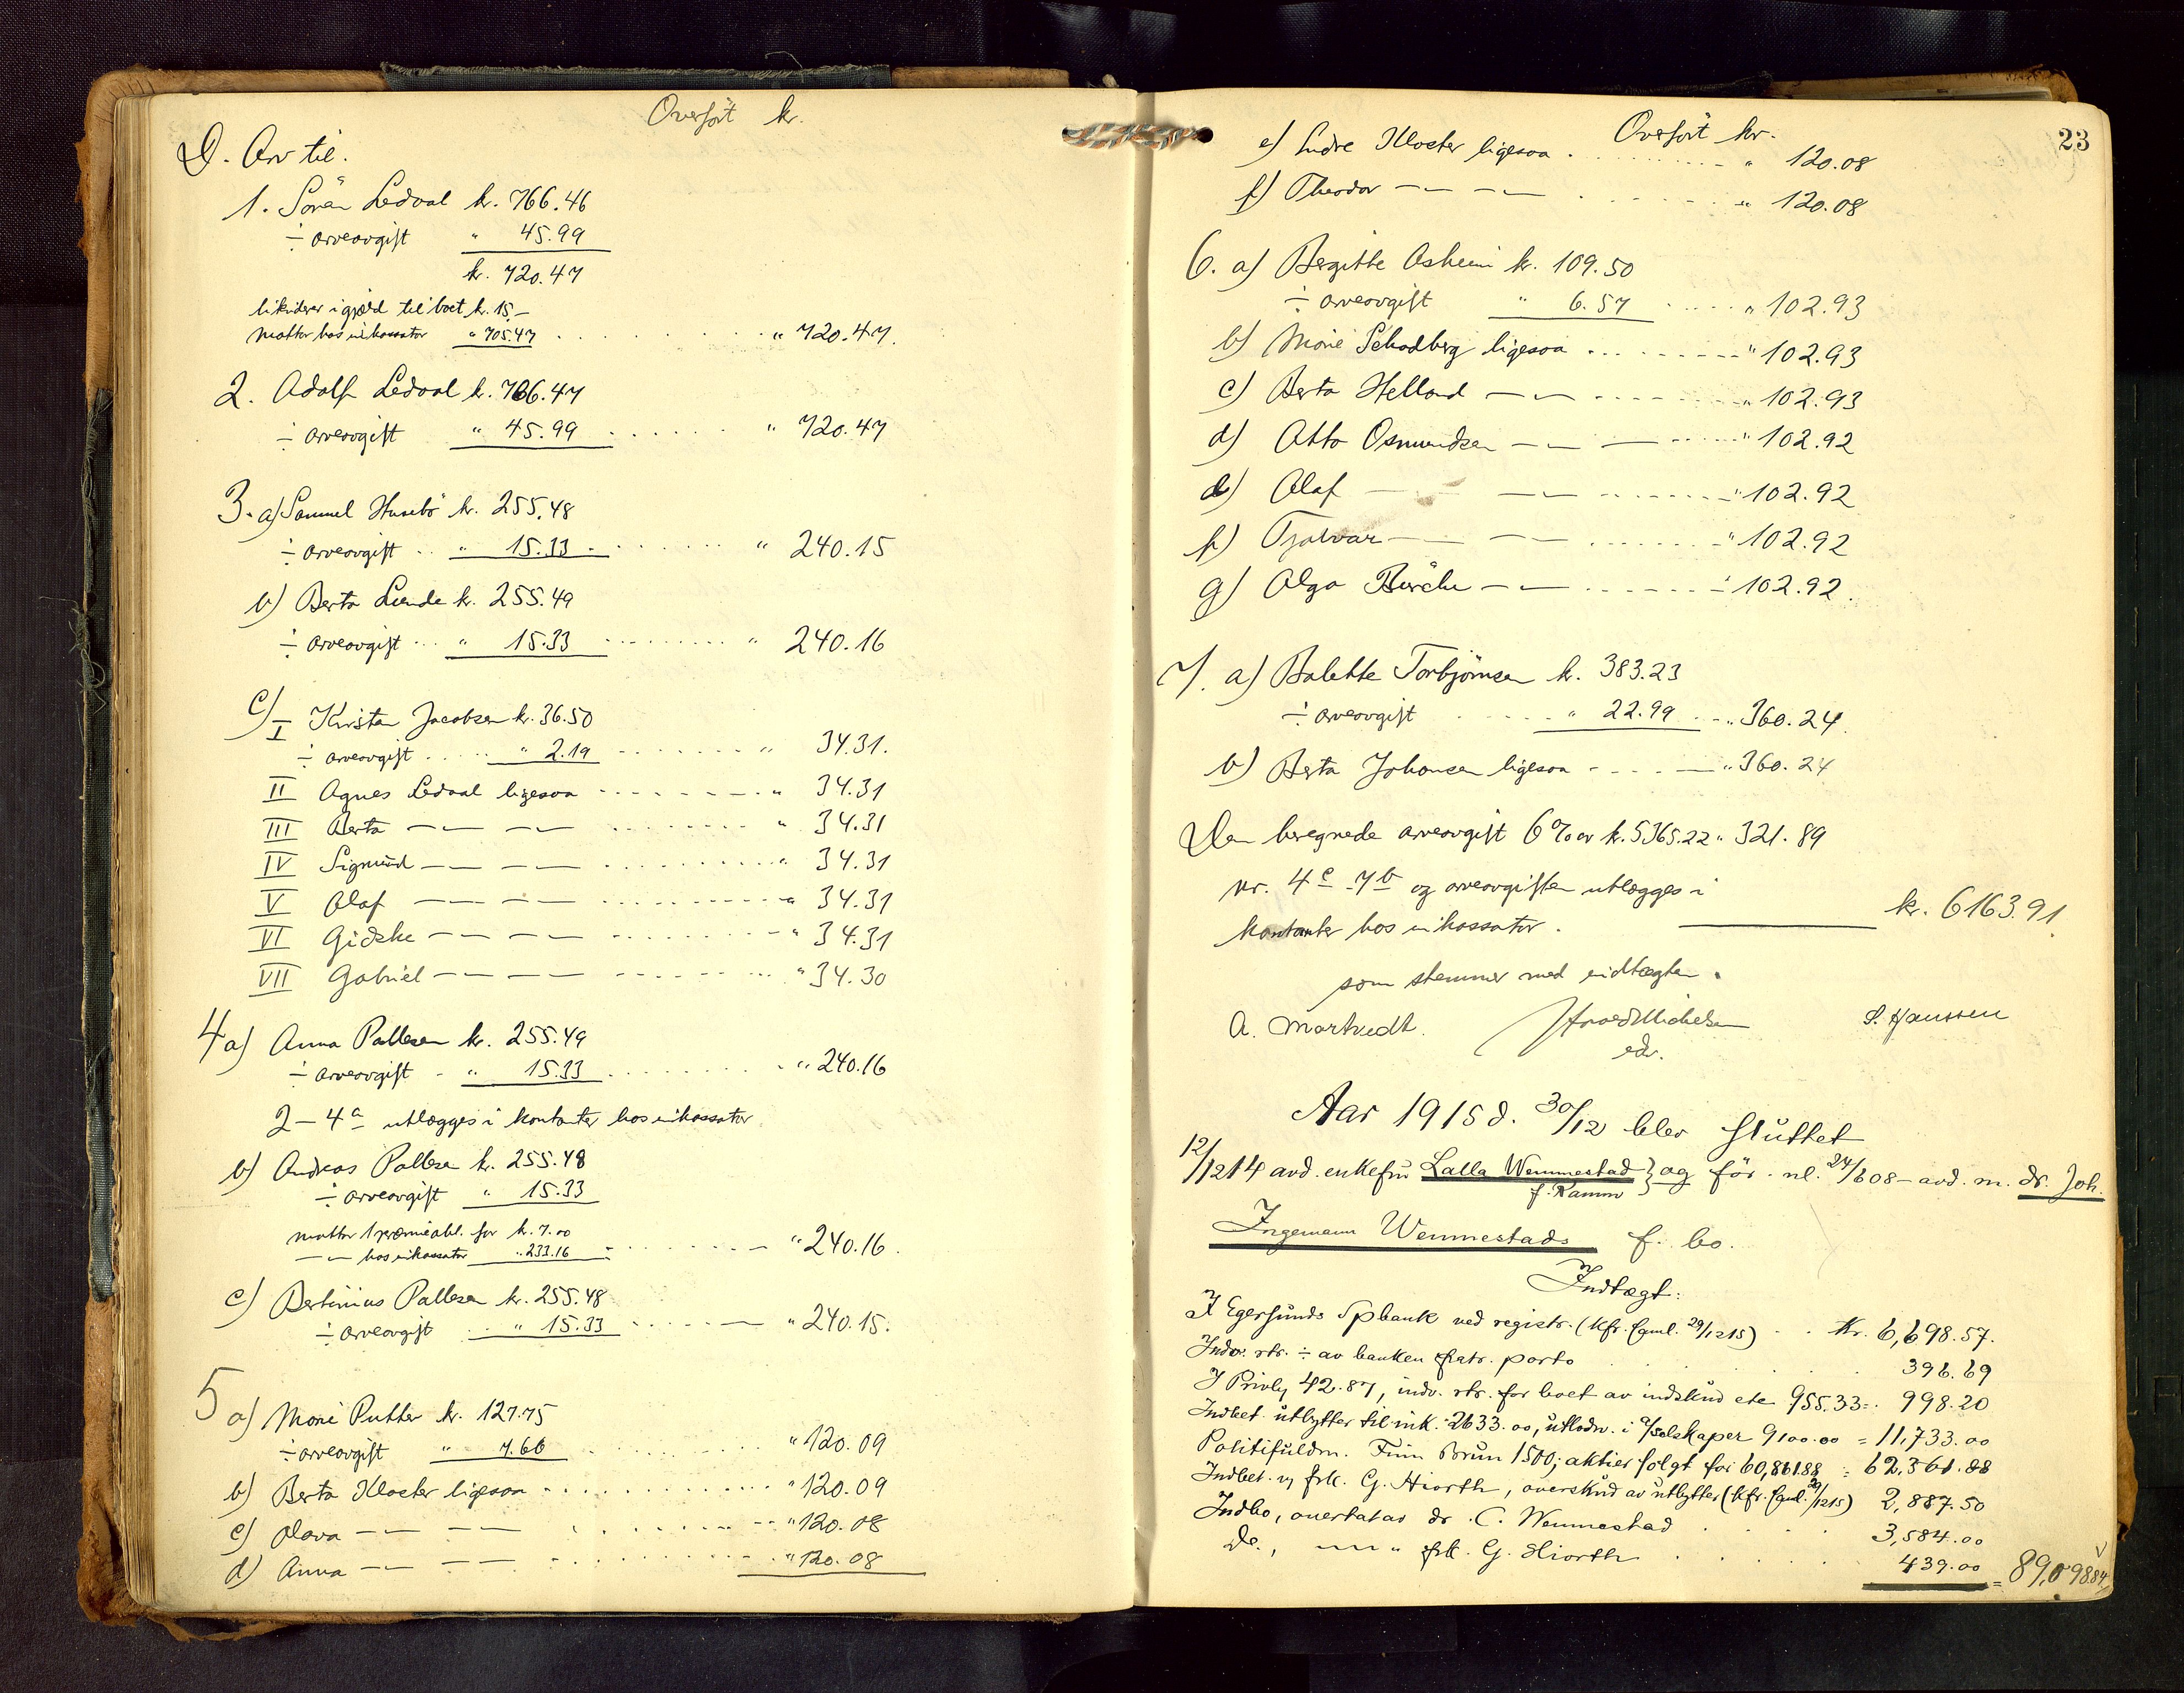 Overført kr.
D. Arv til.
1. Sören Ledaal kr. 766.46
÷ arveavgift " 45.99
kr. 720.47
likiderer i gjæld til boet kr. 15,-
mottar hos inkassator " 705.47 " 720.47.
2. Adolf Ledaal kr. 766.47
÷ arveavgift " 45.99 " 720.47
3. a) Samuel Husebö kr. 255.48
÷ arveavgift " 15.33 " 240.15
b) Berta Lunde kr. 255.49
÷ arveavgift " 15.33 " 240.16
c) I Kirsten Jacobsen kr. 36.50
÷ arveavgift " 2.19 " 34.31.
II Agnes Ledaal ligesaa " 34.31
III Berta —"— —"— " 34.31
IV Sigmund —"— —"— " 34.31
V Olaf —"— —"— " 34.31
VI Gidske —"— —"— " 34.31
VII Gabriel —"— —"— " 34.30
4 a) Anna Pallesen kr. 255.49
÷ arveavgift " 15.33 " 240.16
2 – 4 a utlægges i kontanter hos inkassator
b) Andreas Pallesen kr. 255.48
÷ arveavgift " 15.33
mottar 1 præmieobl. for kr. 7.00
—"— hos inkassator " 233.16 " 240.16.
c) Bertinius Pallesen kr. 255.48
÷ arveavgift " 15.33 " 240.15.
5 a) Marie Puttken kr. 127.75
÷ arveavgift " 7.66 " 120.09
b) Berta Kloster ligesaa " 120.09
c) Olava —"— —"— " 120.08
d) Anna —"— —"— " 120.08
23
Overført kr.
e) Endre Kloster ligesaa " 120.08
f) Theodor —"— —"— " 120.08
6. a) Bergitte Asheim kr. 109.50
÷ arveavgift " 6.57 " 102.93
b) Marie Schadberg ligesaa " 102.93
c) Berta Helland —"— " 102.93
d) Otto Osmundsen —"— — " 102.92
e) Olaf — —"— " 102.92
f) Tjalvar — —"— " 102.92
g) Olga Birche —"— " 102.92.
7. a) Balette Torbjörnsen kr. 383.23
÷ arveavgift " 22.99 " 360.24.
b) Berta Johansen ligesaa " 360.24
Den beregnede arveavgift 6% av kr. 5365.22 " 321.89
nr. 4 c – 7 b og arveavgiften utlægges i
kontanter hos inkassator. kr. 6163.91.
som stemmer med indtægten.
A. Mortvedt. S. Hanssen
edv.
Aar 1915 d. 30/12 blev sluttet
12/1214 avd. enkefru Lalla Wemmestad f. Kamm } og før. nl. 24/608 – avd. m. dr. Joh.
Ingemann Wemmestads f. bo.
Indtægt:
I Egersunds Spbank ved registr. (kfr. saml. 29/1215) Kr. 6,698.57.
Indv. rtr. ÷ av banken fratr. porto 396.69
I Privby 42.87, indv. rtr. for boet av indskud etc 955.33 = 998.20
Indbet. utbytter til ink. 2633.00, utlodn. i a/selskaper 9100.00 = 11,733.00
Politifuldm. Finn Brun 1500; aktier solgt for 60,861.88 = 62,361.88
Indbet. v/ frk. G. Hiorth, overskud av utbytter (kfr. saml. 29/1215) 2,887.50
Indbo, overtat av dr. C. Wemmestad 3,584.00
Do., —"— " frk. G. Hiorth 439.00 = 89,098.84